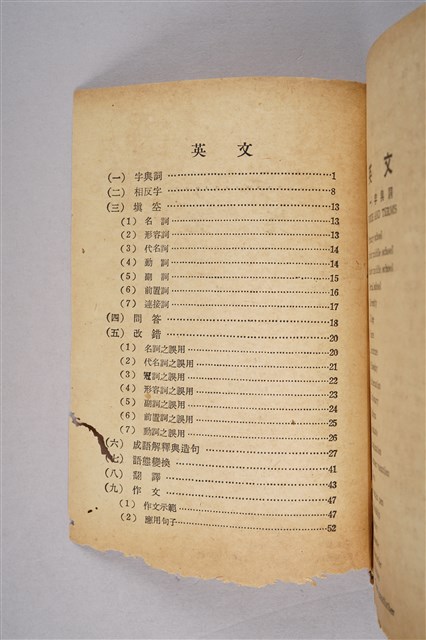 英 文
(一) 字與詞 1
(二) 相反字 8
(三) 填空 13
(1) 名 詞 13
(2) 形容詞 13
(3) 代名詞 14
(4) 動 詞 14
(5) 副 詞 15
(6) 前置詞 16
(7) 連接詞 17
(四) 問答 18
(五) 改錯 20
(1) 名詞之誤用 20
(2) 代名詞之誤用 21
(3) 冠詞之誤用 22
(4) 形容詞之誤用 23
(5) 副詞之誤用 24
(6) 前置詞之誤用 25
(7) 動詞之誤用 26
(六) 成語解釋與造句 27
(七) 語態變換 41
(八) 翻譯 43
(九) 作文 47
(1) 作文示範 47
(2) 應用句子 52
文
AND TERMS
school
middle school
middle school